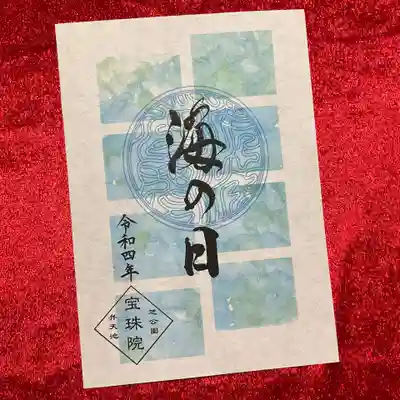 海の日
令和四年
芝公園
宝珠院
弁天池